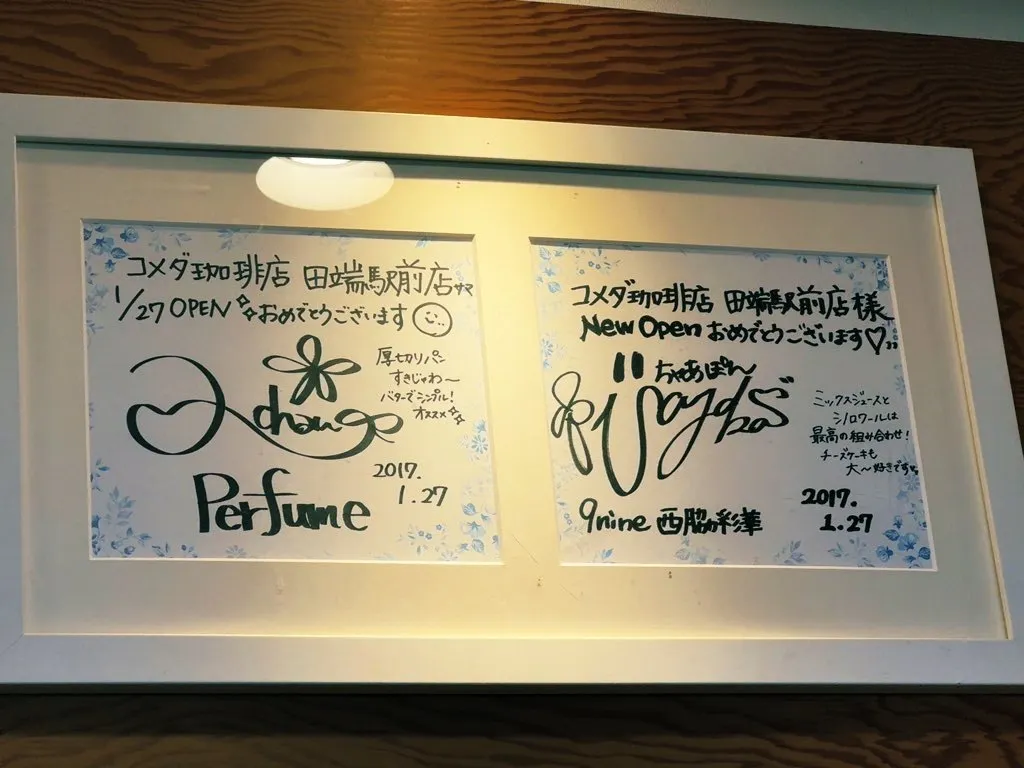 コメダ珈琲店 田端駅前店サマ
1/27 OPEN おめでとうございます
厚切りパン
すきじゃわ〜
バターでシンプル!
オススメ
a-chan
Perfume
2017.
1.27
コメダ珈琲店 田端駅前店様
New Open おめでとうございます♡
ちゃあぽん
Sayaka
ミックスジュースと
シロノワールは
最高の組み合わせ!
チーズケーキも
大〜好きです
9nine 西脇彩華
2017.
1.27